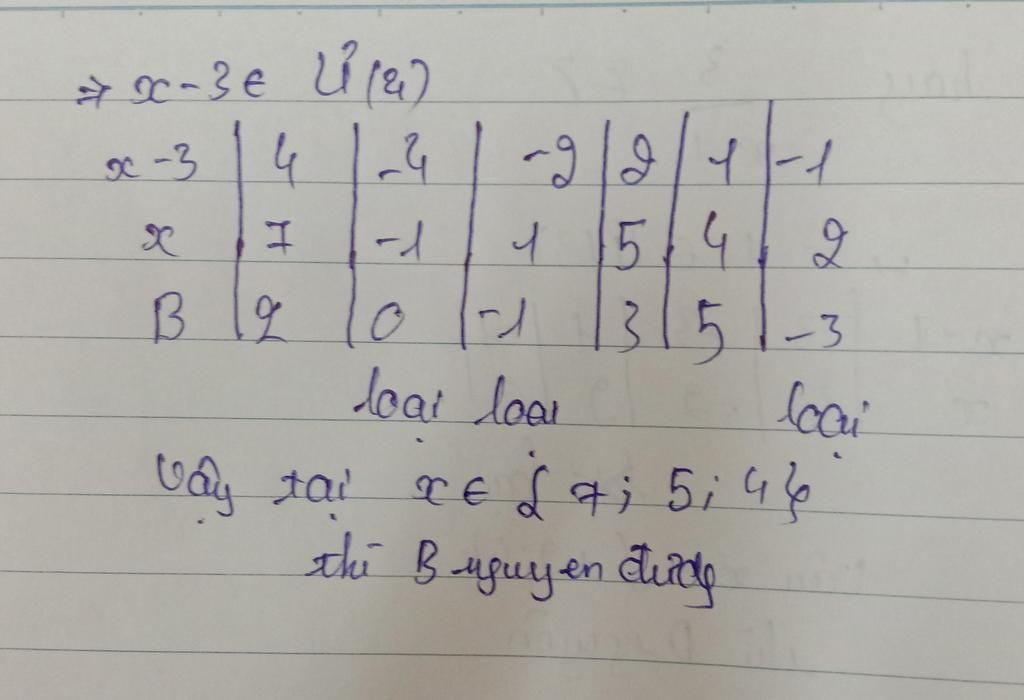 ⇒ x-3 ∈ Ư(4)
x-3 | 4 | -4 | -2 | 2 | 1 | -1
x | 7 | -1 | 1 | 5 | 4 | 2
B | 2 | 0 | -1 | 3 | 5 | -3
loại loại loại
Vậy tại x ∈ { 7; 5; 4 }
thì B nguyen dương